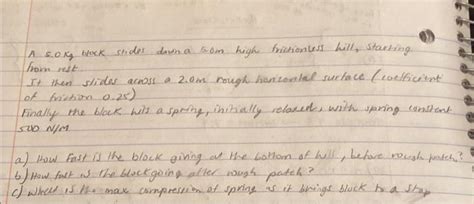 A 5.0 Kg block slides down a 5.0m high frictionless hill, starting
from rest
It then slides across a 2.0m rough horizontal surface (coefficient
of friction 0.25)
Finally the block hits a spring, initially relaxed, with spring constant
500 N/M
a) How fast is the block going at the bottom of hill, before rough patch?
b) How fast is the block going after rough patch?
c) What is the max compression of spring as it brings block to a stop